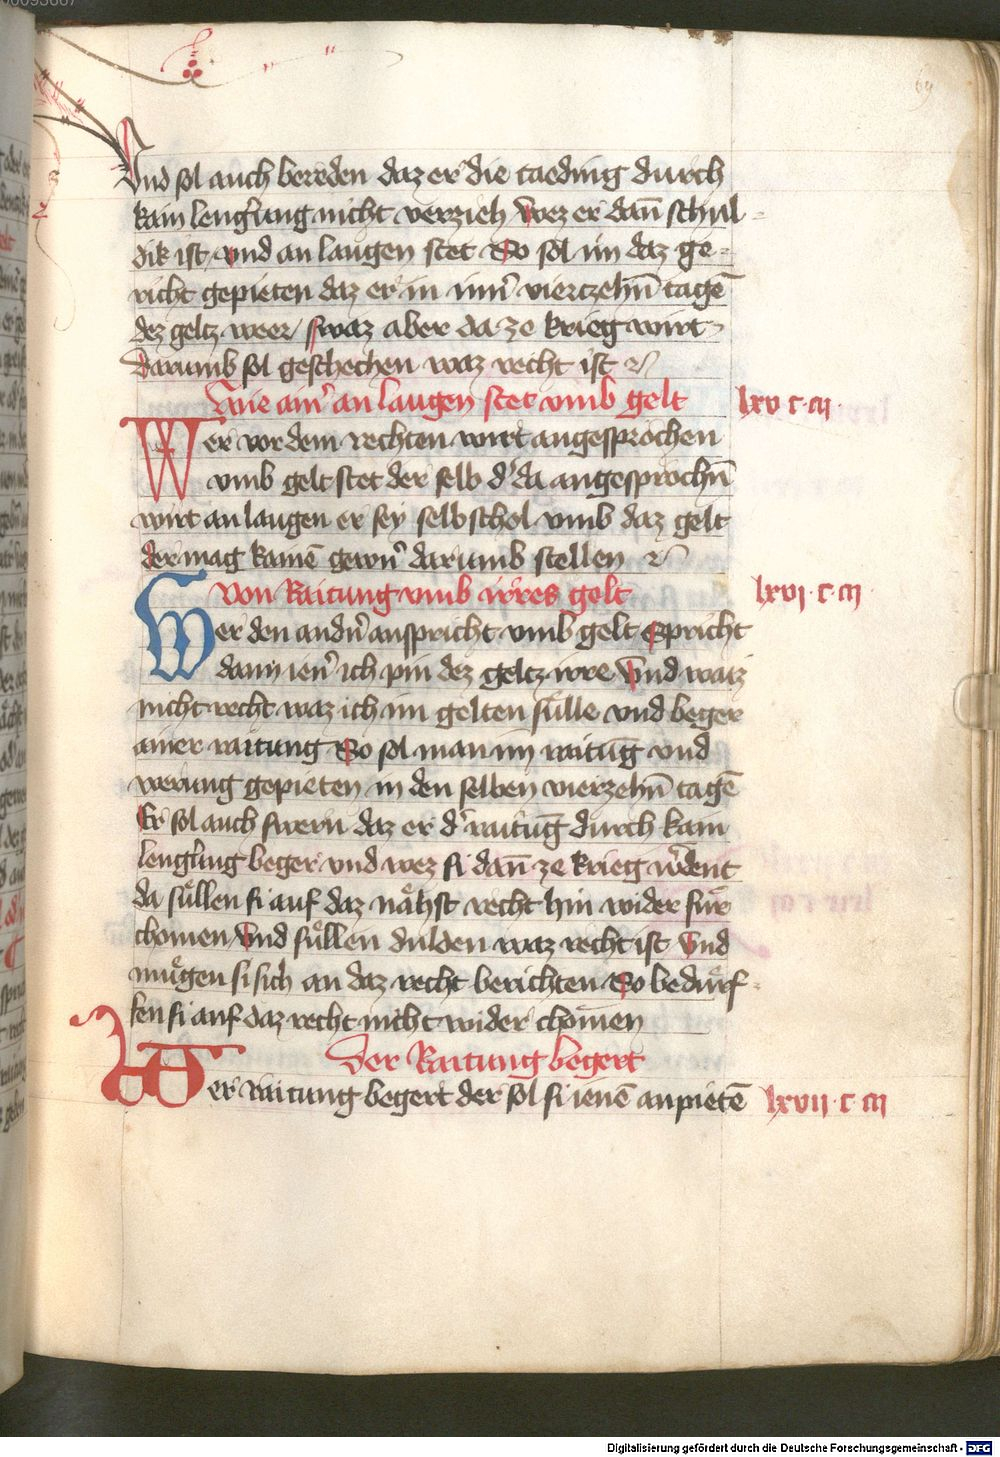 69
Vnd sol auch bereden daz er die taeding durch
kain lengrung nicht verzieh Wez er dan̄ schul=
dik ist vnd an laugen stet So sol im daz ge=
richt gepieten daz er in im̄ viertzehn̄ tagē
dez geltz weer / swaz aber da ze krieg wirt
darumb sol geschechen waz recht ist
Wie ain' an laugen stet vmb gelt
lxv c m
Wer vor dem rechten wirt angesprochen
vmb gelt stet der selb d' da angesprochn̄
wirt an laugen er sey selbschol vmb daz gelt
der mag kainē gewern' darumb stellen
Von Raitung vmb irres gelt
lxvi c m
Wer den andn' anspricht vmb gelt Spricht
dann ien' ich pin dez geltz irre Vnd waiz
nicht recht waz ich im gelten sülle vnd beger
ainer raitung So sol man im raitūg vnd
werung gepieten in den selben vierzehn̄ tagē
Er sol auch swern daz er d' raitūg durch kain
lengrung beger vnd wez si dan̄ ze krieg w'dent
da süllen si auf daz nähst recht hin wider für
chomen Vnd süllen dulden waz recht ist Vnd
mügen si sich an daz recht berichten So bedürf=
fen si auf daz recht nicht wider chomen
Der Raitung begert
Wer raitung begert der sol si ienē anpietē
lxvii c m
Digitalisierung gefördert durch die Deutsche Forschungsgemeinschaft - DFG